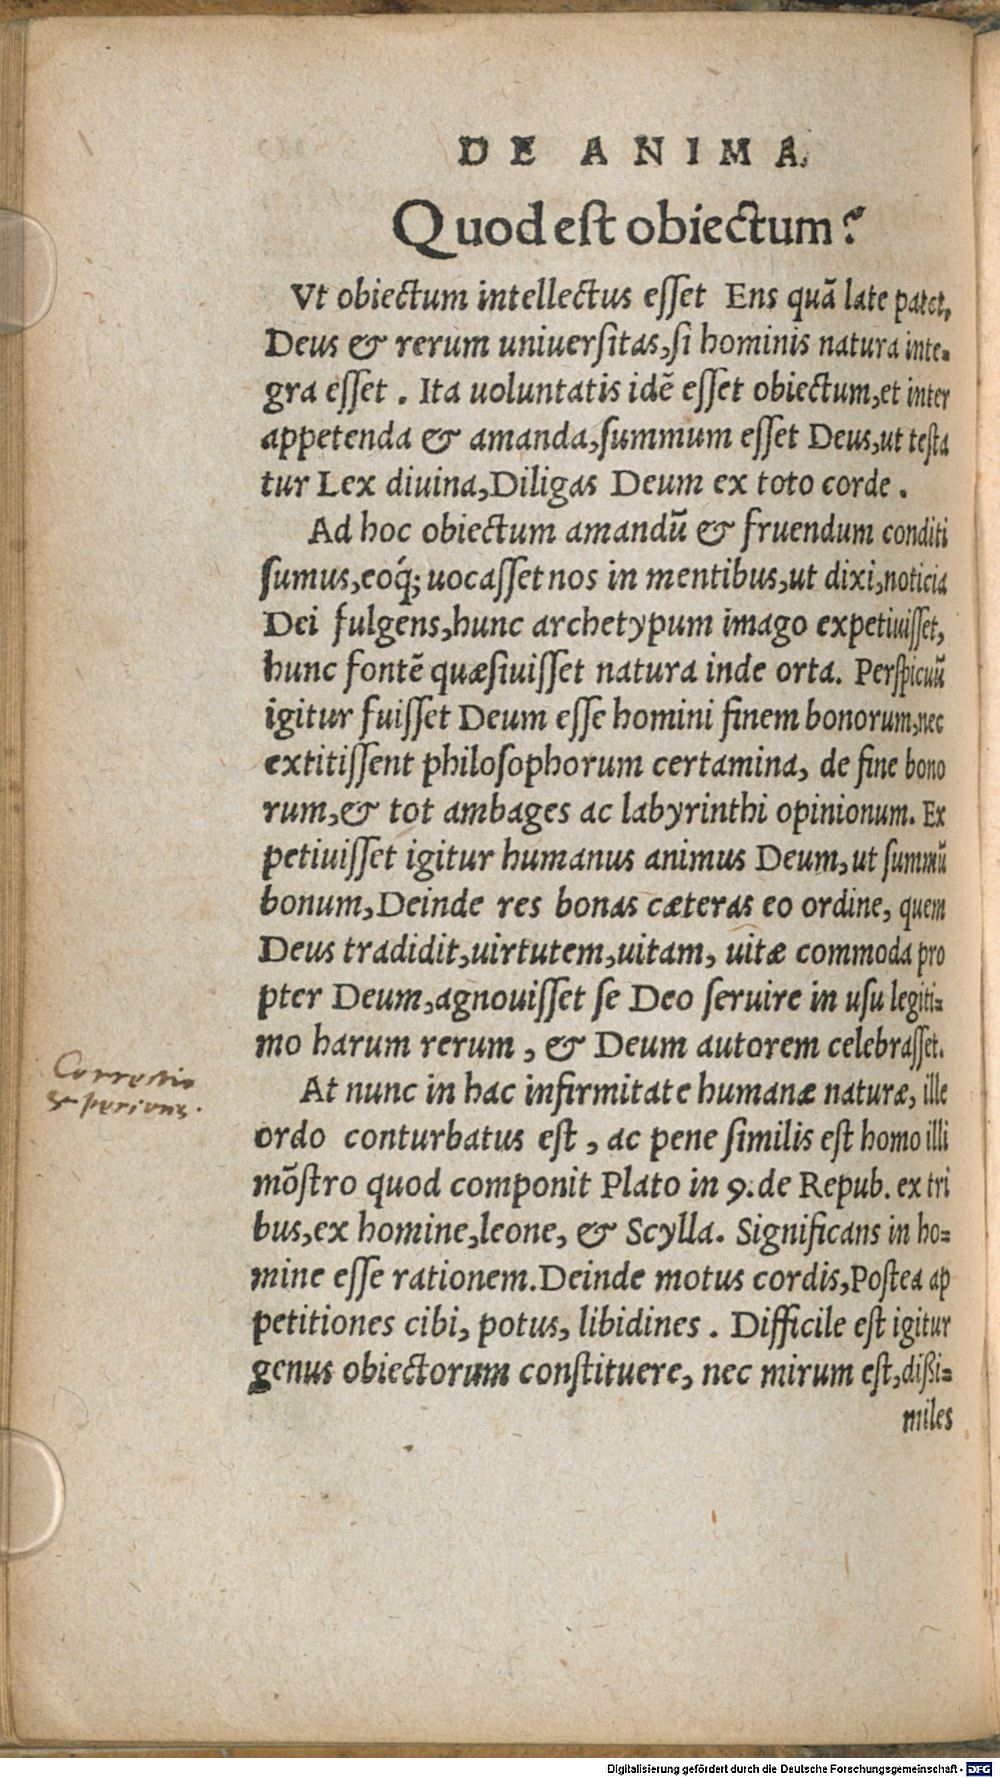 DE ANIMA
Quod est obiectum?
Vt obiectum intellectus esset Ens quā late patet,
Deus & rerum uniuersitas, si hominis natura inte-
gra esset . Ita uoluntatis idē esset obiectum, et inter
appetenda & amanda, summum esset Deus, ut testa
tur Lex diuina, Diligas Deum ex toto corde .
Ad hoc obiectum amandū & fruendum conditi
sumus, eoq́; uocasset nos in mentibus, ut dixi, noticia
Dei fulgens, hunc archetypum imago expetiuisset,
hunc fontē quæsiuisset natura inde orta. Perspicuū
igitur fuisset Deum esse homini finem bonorum, nec
extitissent philosophorum certamina, de fine bono
rum, & tot ambages ac labyrinthi opinionum. Ex
petiuisset igitur humanus animus Deum, ut summū
bonum, Deinde res bonas cæteras eo ordine, quem
Deus tradidit, uirtutem, uitam, uitæ commoda pro
pter Deum, agnouisset se Deo seruire in usu legiti-
mo harum rerum , & Deum autorem celebrasset.
Correctio
At nunc in hac infirmitate humanæ naturæ, ille
ordo conturbatus est , ac pene similis est homo illi
mōstro quod componit Plato in 9. de Repub. ex tri
bus, ex homine, leone, & Scylla. Significans in ho-
mine esse rationem. Deinde motus cordis, Postea ap
petitiones cibi, potus, libidines . Difficile est igitur
genus obiectorum constituere, nec mirum est, dißi-
miles
Digitalisierung gefördert durch die Deutsche Forschungsgemeinschaft - DFG